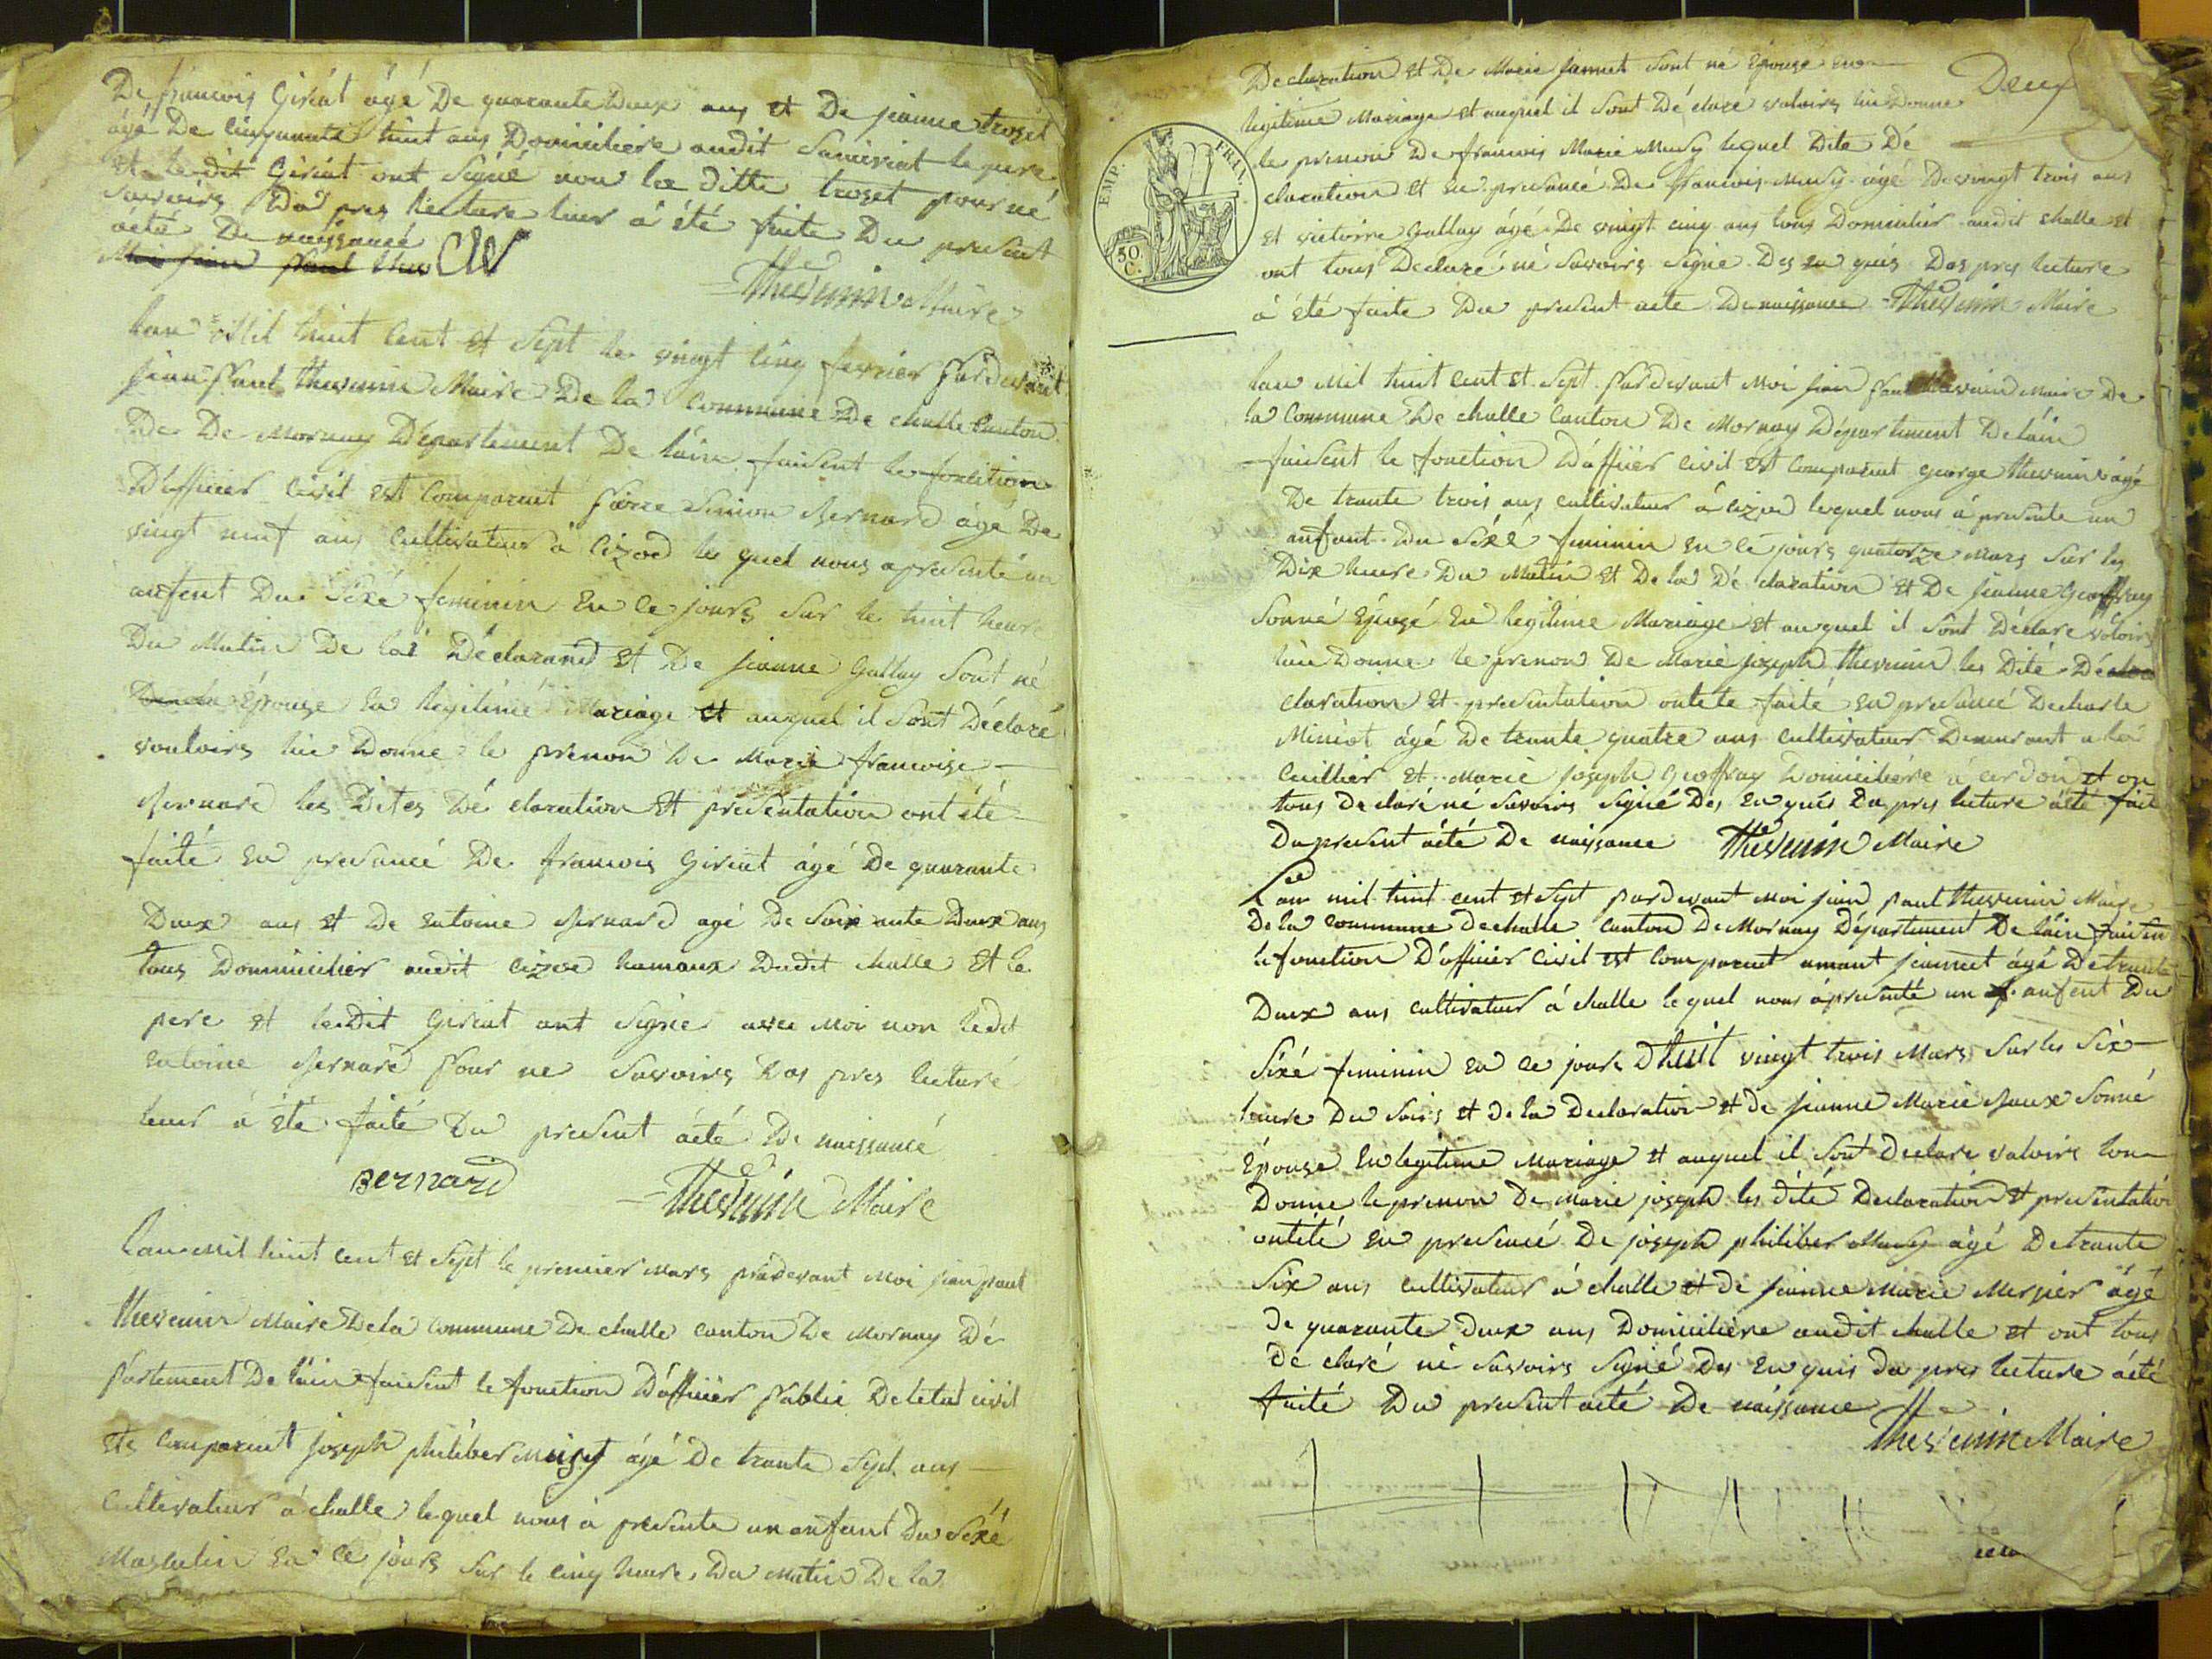 De francois Giriat âgé De quarante Deux ans et De jeanne trozet
âgé De cinquante huit ans Domicilière audit Sanisiat le pere
et le dit Giriat ont Signé non la ditte trozet pour né
Savoirs Da pres lecture leur à été faite Du present
acté De naissancé
Moi jean Paul thev
Thevenin Maire
lan Mil huit Cent et Sept le vingt cinq fevrier Pardevant
jean Paul thevenin Maire De la commune De challe Canton
De De Mornay Département De láin faisent le fonction
D'officier Civil est comparut Pierre Simon Bernard âgé De
vingt neuf ans Cultivateur à Cizod le quel nous a presenté un
anfent Du Séxé feminin En ce jours Sur le huit heure
Du Matin De lai Déclarand et De jeanne Gallay Sont né
Épouze En legitimé Mariage et auquel il Sont Déclaré
vouloirs lui Donne le prenon De Marie francoise
Bernard les Dites Dé claration et presentation ont été
faité En presancé De francois Giriat âgé De quarante
Deux ans et De entoine Bernard agé De Soixante Deux ans
tous Dommicilier audit Cizod hamaux Dudit challe et le
pere et ledit Giriat ont Signé avec Moi non ledit
entoine Bernard Pour ne Savoirs Das pres lecturé
leur à été faité Du present acté De naissancé
Bernard
Thevenin Maire
lan Mil huit cent et Sept le premier Mars pardevant Moi jean paul
thevenin Maire De la commune De challe canton De Mornay Dé
Partement De láin faisent le fonction D'officier Public De letat civil
ete comparut joseph philiber Musy âgé De trante Sept ans
Cultivateur à challe le quel nous à presente un anfant Du Séxé
Masculin En ce jours Sur le cinq heure Du Matin De la
Deux
Declaration et De Marie jannet Sont né Épouze en
legitime Mariage et auquel il Sont Dé clare voloirs lui Donne
le prenon De francois Marie Musy lequel Dite Dé
EMP. FRAN.
50 C.
claration et En presancé De francois Musy âgé De vingt trois ans
et victoire Gallay âgé De vingt cinq ans tous Domicilier audit challe et
ont tous Declaré né Savoirs Signé Des en quis Das pres lecture
à été faite Du present acte De naissance Thevenin Maire
lan Mil huit cent et Sept Pardevant Moi jean Paul thevenin Maire De
la commune De challe Canton De Mornay Département De láin
faisent le fonction D'officier civil est comparut george thevenin âgé
De trante trois ans cultivateur à Cizod lequel nous à presente un
anfant Du Séxé feminin En ce jours quatorze Mars Sur les
Dix heure Du Matin et De la Dé claration et De jeanne Geoffray
Sonné Épouzé En legitime Mariage et auquel il Sont Déclare voloirs
lui Donne le prenon De Marie joseph thevenin les Dité Dé
claration et presentation ontete faité En presancé De charle
Miniot âgé De trante quatre ans cultivateur Demeurant a
Cuillier et Marie joseph Geoffray Domicilière à cerdon et on
tous De claré né Savoirs Signé Des En quis Da pres lecture a été fait
Du present acté De naissance Thevenin Maire
Lan mil huit cent et Sept pardevant moi jean paul thevenin Maire
De la commune De challe canton De Mornay Département De láin faisen
le fonction D'officier Civil est comparut amant jeannet âgé De trante
Deux ans cultivateur à challe lequel nous à presenté un anfent Du
Séxé feminin En ce jours Dhuit vingt trois Mars Sur les Six
heure Du Soirs et de la Declaration et de jeanne Marie Sonné
Épouze En legitime Mariage et auquel il Sont Declare valoirs lon
Donne le prenon De Marie joseph les dité Declaration et presentation
ontété En presencé De joseph philiber Musy âgé De trante
Six ans cultivateur à challe et de jeanne Marie Mersier âgé
de quarante deux ans Domicilière audit challe et ont tous
de claré né Savoirs Signé Des En quis da pres lecture áeté
faité Du present acté De naissance
Thevenin Maire